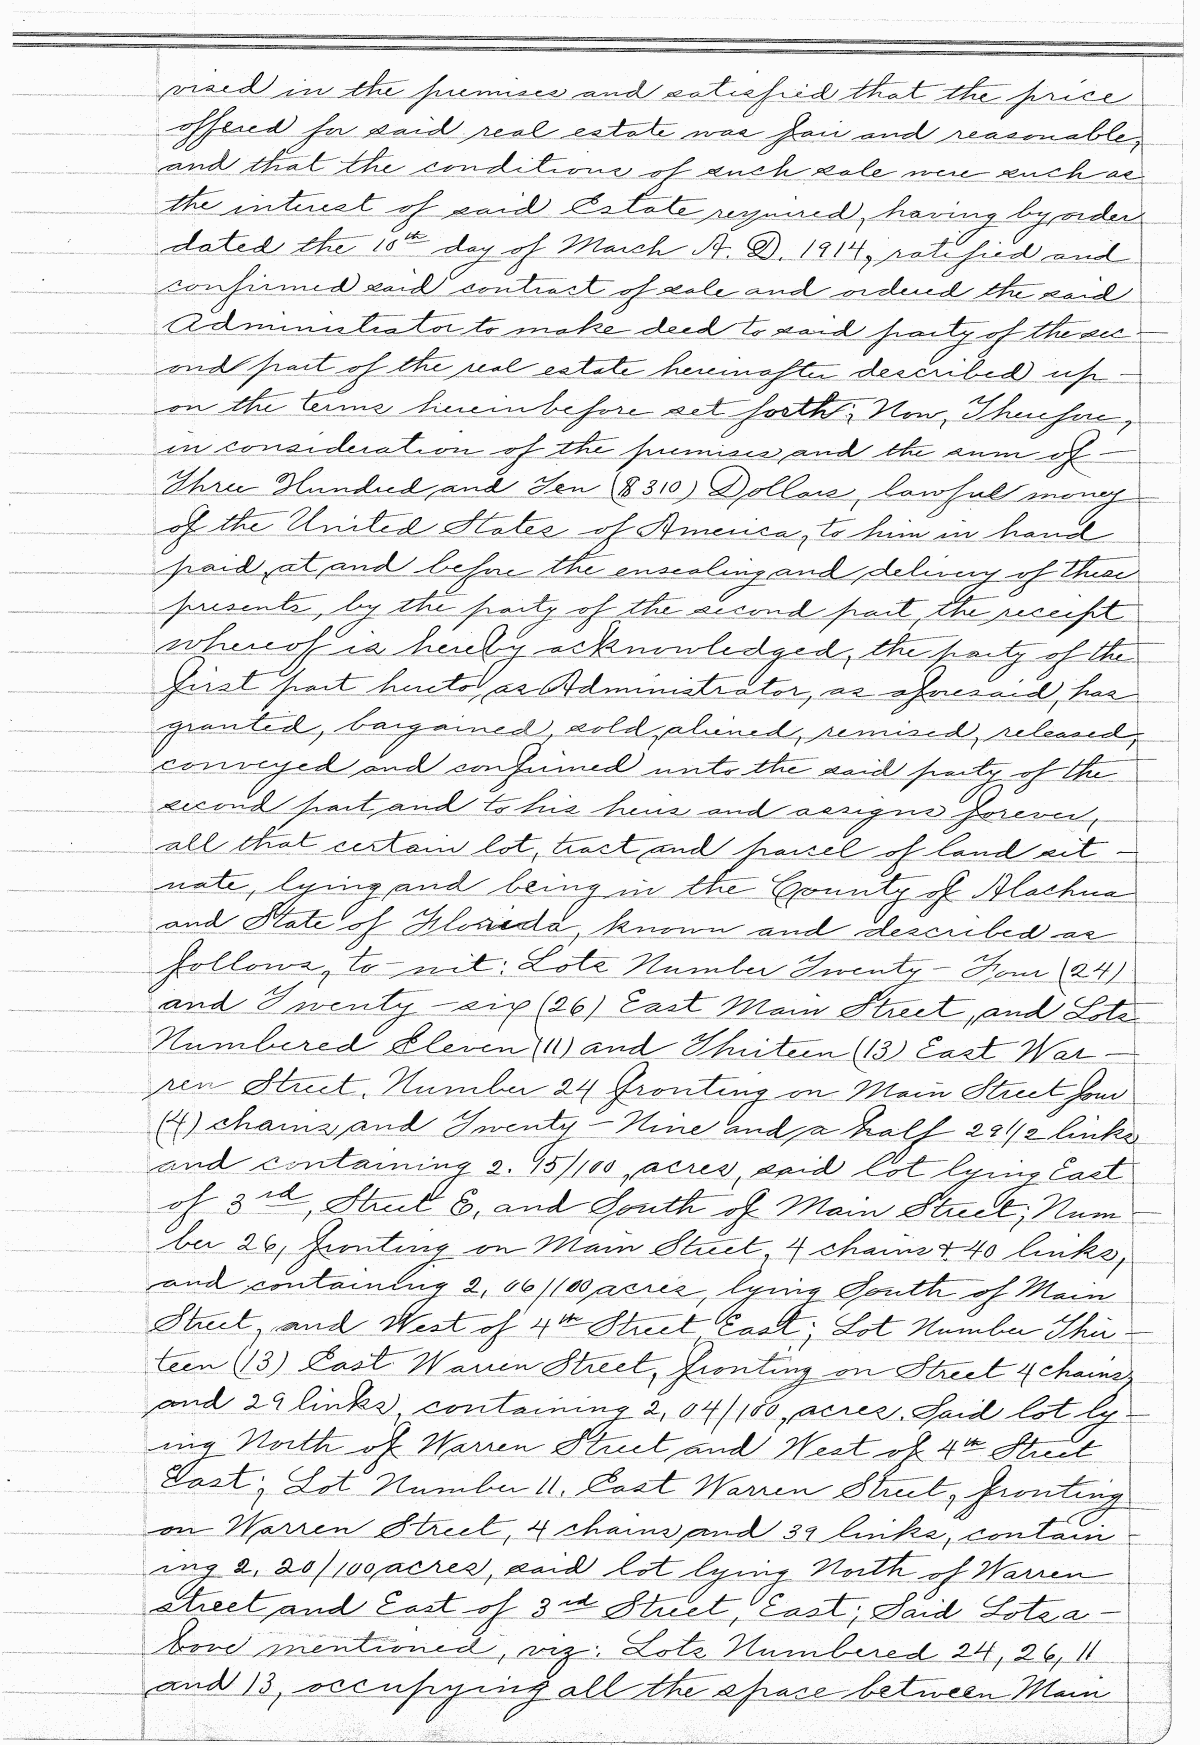 vised in the premises and satisfied that the price
offered for said real estate was fair and reasonable,
and that the conditions of such sale were such as
the interest of said Estate required, having by order
dated the 10th day of March A. D. 1914, ratified and
confirmed said contract of sale and ordered the said
Administrator to make deed to said party of the sec-
ond part of the real estate hereinafter described up-
on the terms hereinbefore set forth; Now, Therefore,
in consideration of the premises, and the sum of -
Three Hundred, and Ten ($310) Dollars, lawful money
of the United States of America, to him in hand
paid, at, and before the ensealing, and delivery of these
presents, by the party of the second part, the receipt
whereof is hereby acknowledged, the party of the
first part hereto, as Administrator, as aforesaid, has
granted, bargained, sold, aliened, remised, released,
conveyed and confirmed unto the said party of the
second part, and to his heirs and assigns forever,
all that certain lot, tract, and parcel of land sit-
uate, lying, and being in the County of Alachua
and State of Florida, known and described as
follows, to-wit: Lots Number Twenty-Four (24)
and Twenty-six (26) East Main Street, and Lots
Numbered Eleven (11) and Thirteen (13) East War-
ren Street. Number 24 fronting on Main Street four
(4) chains, and Twenty-Nine and, a half 29 1/2 links
and containing 2. 15/100, acres, said lot lying East
of 3rd, Street E, and South of Main Street; Num-
ber 26, fronting on Main Street, 4 chains & 40 links,
and containing 2, 06/100 acres, lying South of Main
Street, and West of 4th Street, East; Lot Number Thir-
teen (13) East Warren Street, fronting on Street 4 chains,
and 29 links, containing 2, 04/100, acres. Said lot ly-
ing North of Warren Street and West of 4th Street
East; Lot Number 11, East Warren Street, fronting
on Warren Street, 4 chains, and 39 links, contain-
ing 2, 20/100, acres, said lot lying North of Warren
street, and East of 3rd Street, East; Said Lots a-
bove mentioned, viz: Lots Numbered 24, 26, 11
and 13, occupying all the space between Main